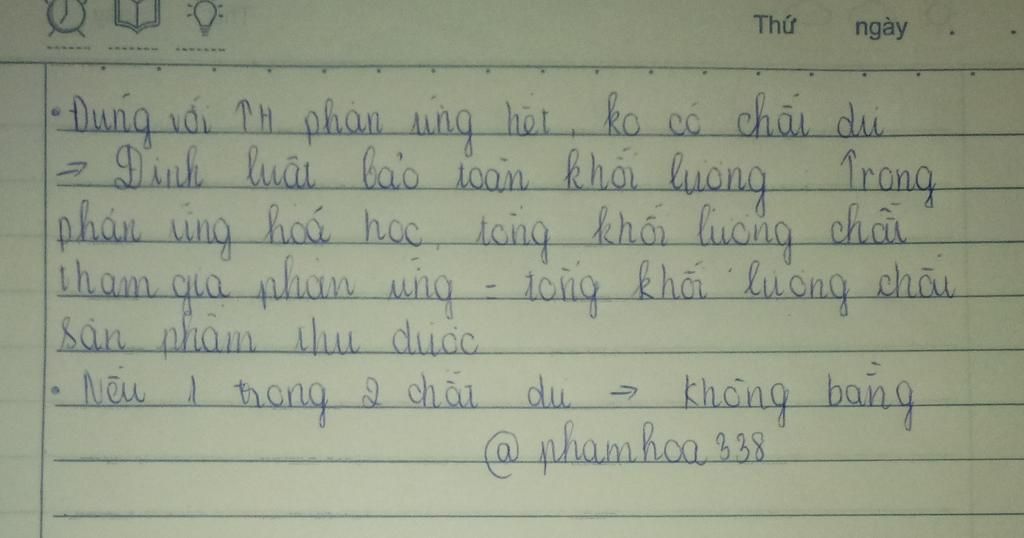 Thứ ngày . .
• Đúng với TH phản ứng hết, ko có chất dư
⇒ Định luật bảo toàn khối lượng Trong
phản ứng hoá học, tổng khối lượng chất
tham gia phản ứng = tổng khối lượng chất
sản phẩm thu được
• Nếu 1 trong 2 chất dư ⇒ không bằng
@phamhoa338